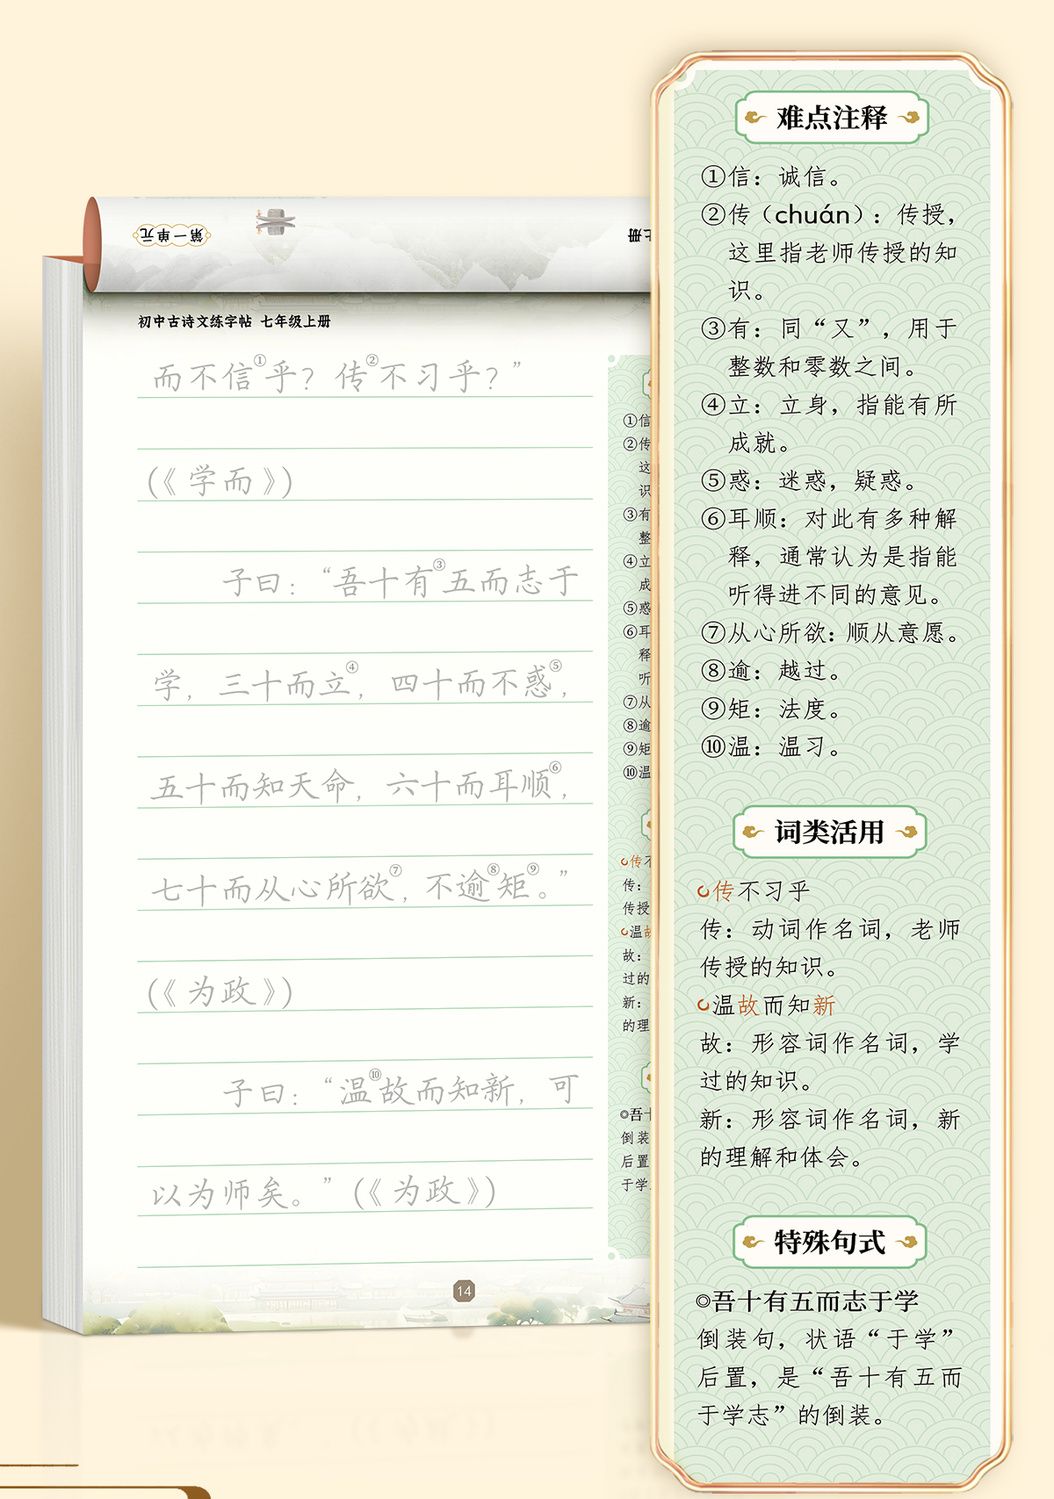 第一单元
上册
初中古诗文练字帖 七年级上册
而不信①乎？传②不习乎？”
(《学而》)
子曰：“吾十有③五而志于
学，三十而立④，四十而不惑⑤，
五十而知天命，六十而耳顺⑥，
七十而从心所欲⑦，不逾⑧矩⑨。”
(《为政》)
子曰：“温⑩故而知新，可
以为师矣。”(《为政》)
14
①信
②传
这
识
③有
整
④立
成
⑤惑
⑥耳
释
听
⑦从
⑧逾
⑨矩
⑩温
传不
传：
传授
温故
故：
过的
新：
的理
◎吾十
倒装
后置
于学
难点注释
①信：诚信。
②传（chuán）：传授，
这里指老师传授的知
识。
③有：同“又”，用于
整数和零数之间。
④立：立身，指能有所
成就。
⑤惑：迷惑，疑惑。
⑥耳顺：对此有多种解
释，通常认为是指能
听得进不同的意见。
⑦从心所欲：顺从意愿。
⑧逾：越过。
⑨矩：法度。
⑩温：温习。
词类活用
传不习乎
传：动词作名词，老师
传授的知识。
温故而知新
故：形容词作名词，学
过的知识。
新：形容词作名词，新
的理解和体会。
特殊句式
◎吾十有五而志于学
倒装句，状语“于学”
后置，是“吾十有五而
于学志”的倒装。